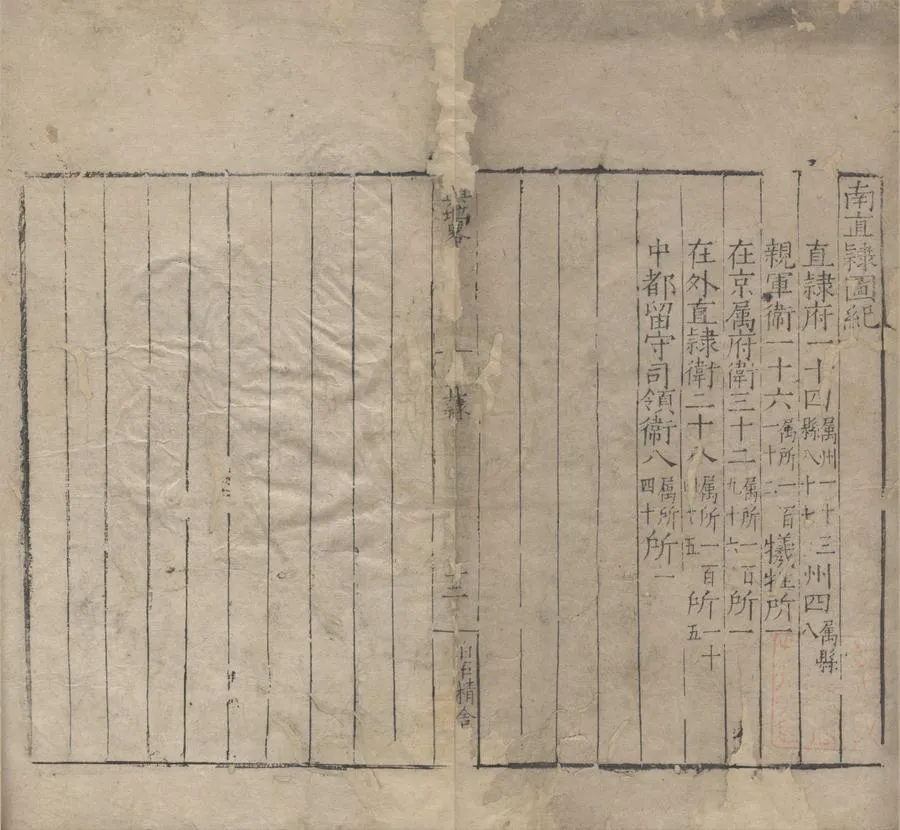 南直隸圖紀
直隸府一十四属州一十三縣八十七州四属縣八
親軍衛一十六属所一百一十二犧牲所一
在京属府衛三十二属所一百九十六所一
在外直隸衛二十八属所一百四十五所一十五
中都留守司領衛八属所四十所一
畧
隸
精舍